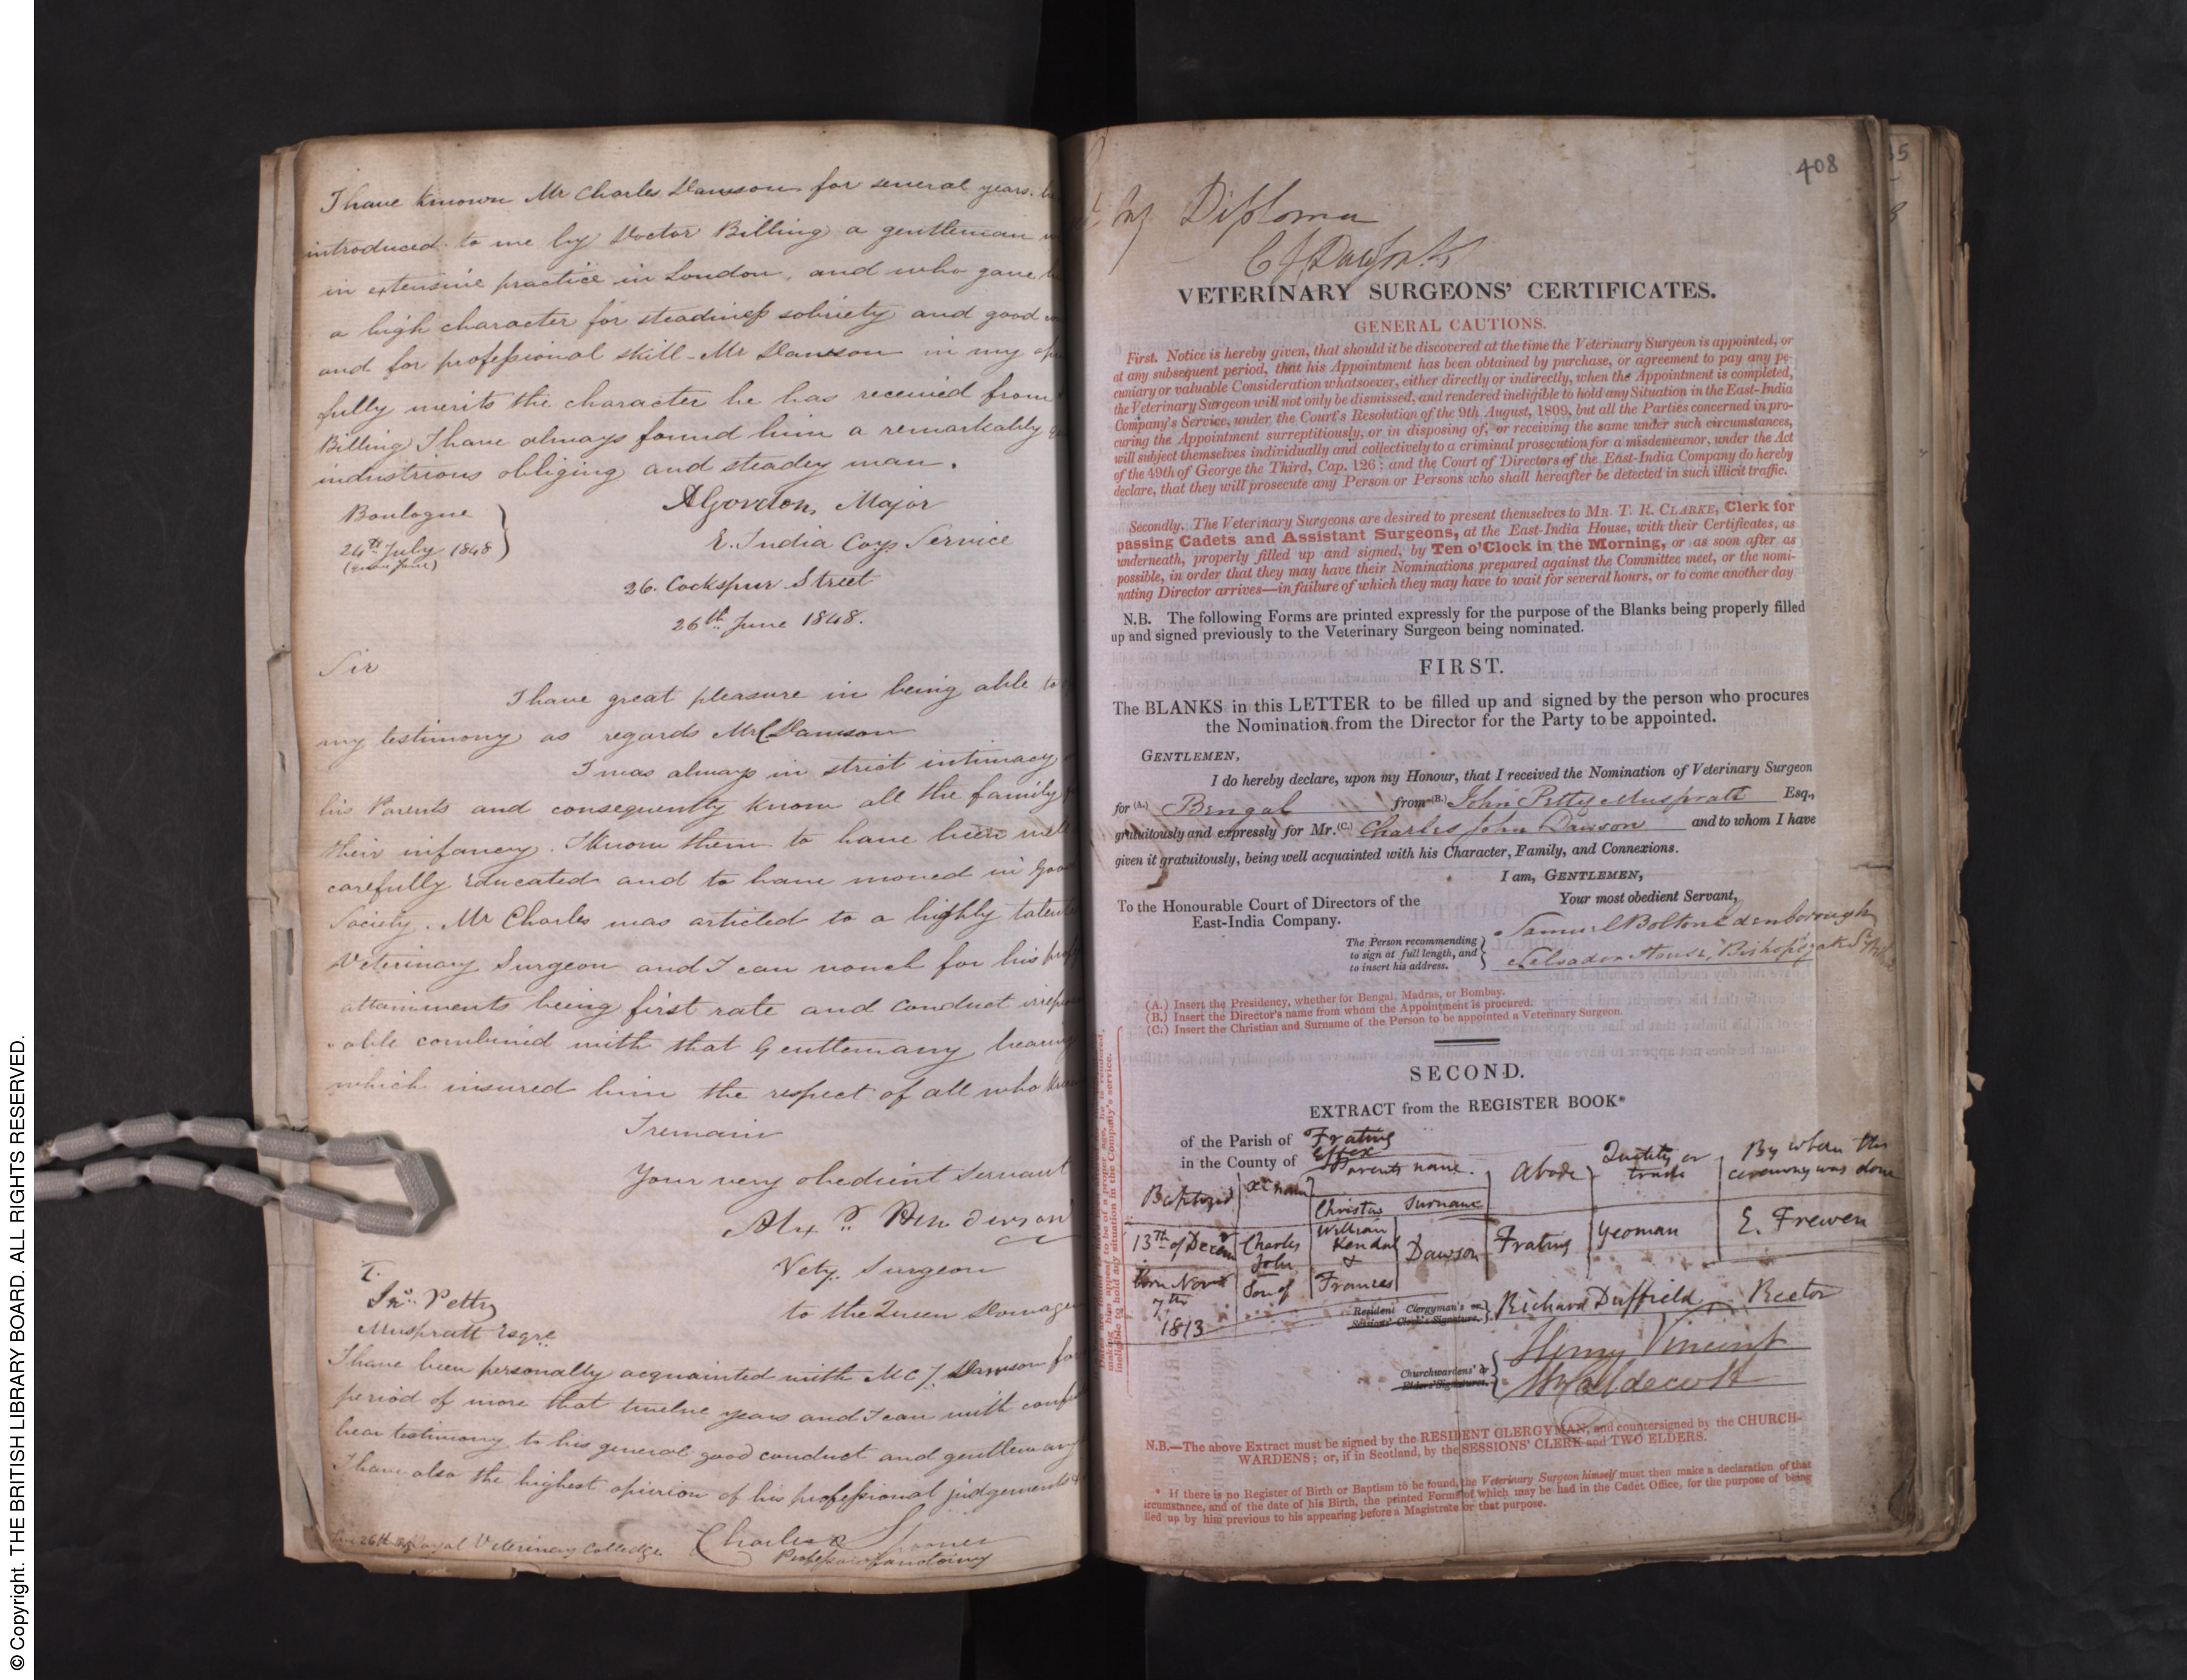 I have known Mr Charles Dawson for several years.
introduced to me by Doctor Billing a gentleman
in extensive practice in London, and who gave
a high character for steadiness sobriety and good
and for professional skill - Mr Dawson in my
fully merits the character he has received from
Billing I have always found him a remarkably
industrious obliging and steadey man.
AGordon, Major
E. India Coys Service
Boulogne
24th July 1848
26. Cockspur Street
26th June 1848.
Sir
I have great pleasure in being able to
my testimony as regards Mr C Dawson
I was always in strict intimacy
his Parents and consequently know all the family
their infancy. I know them to have been well
carefully Educated and to have moved in good
Society. Mr Charles was articled to a highly
Veterinary Surgeon and I can vouch for his
attainments being first rate and conduct
able combined with that Gentlemany bearing
which insured him the respect of all who
I remain
Your very obedient Servant
Alexr Henderson
Vety. Surgeon
to the Queen Dowager
T.
Jno. Petty
Muspratt Esqre
I have been personally acquainted with Mr C J. Dawson for
period of more that twelve years and I can with
bear testimony to his general good conduct and
I have also the highest opinion of his professional judgement
26th Royal Veterinary Colledge
Charles
Professor of anatomy
408
Diploma
C J Dawson
VETERINARY SURGEONS' CERTIFICATES.
GENERAL CAUTIONS.
First. Notice is hereby given, that should it be discovered at the time the Veterinary Surgeon is appointed, or
at any subsequent period, that his Appointment has been obtained by purchase, or agreement to pay any pe-
cuniary or valuable Consideration whatsoever, either directly or indirectly, when the Appointment is completed,
the Veterinary Surgeon will not only be dismissed, and rendered ineligible to hold any Situation in the East-India
Company's Service, under the Court's Resolution of the 9th August, 1809, but all the Parties concerned in pro-
curing the Appointment surreptitiously, or in disposing of, or receiving the same under such circumstances,
will subject themselves individually and collectively to a criminal prosecution for a misdemeanor, under the Act
of the 49th of George the Third, Cap. 126; and the Court of Directors of the East-India Company do hereby
declare, that they will prosecute any Person or Persons who shall hereafter be detected in such illicit traffic.
Secondly. The Veterinary Surgeons are desired to present themselves to MR. T. R. CLARKE, Clerk for
passing Cadets and Assistant Surgeons, at the East-India House, with their Certificates, as
underneath, properly filled up and signed, by Ten o'Clock in the Morning, or as soon after as
possible, in order that they may have their Nominations prepared against the Committee meet, or the nomi-
nating Director arrives—in failure of which they may have to wait for several hours, or to come another day
N.B. The following Forms are printed expressly for the purpose of the Blanks being properly filled
up and signed previously to the Veterinary Surgeon being nominated.
FIRST.
The BLANKS in this LETTER to be filled up and signed by the person who procures
the Nomination from the Director for the Party to be appointed.
GENTLEMEN,
I do hereby declare, upon my Honour, that I received the Nomination of Veterinary Surgeon
for (A.) Bengal from (B.) John Petty Muspratt Esq.,
gratuitously and expressly for Mr. (C.) Charles John Dawson and to whom I have
given it gratuitously, being well acquainted with his Character, Family, and Connexions.
I am, GENTLEMEN,
Your most obedient Servant,
To the Honourable Court of Directors of the
East-India Company.
Samuel Bolton Edenborough
The Person recommending
to sign at full length, and
to insert his address.
Salvador House, Bishopsgate St
(A.) Insert the Presidency, whether for Bengal, Madras, or Bombay.
(B.) Insert the Director's name from whom the Appointment is procured.
(C.) Insert the Christian and Surname of the Person to be appointed a Veterinary Surgeon.
SECOND.
EXTRACT from the REGISTER BOOK*
of the Parish of Frating
in the County of Essex
Baptized Parents name. Abode Quality or trade By whom the ceremony was done
Christian Surname
13th of Decem Charles John William Kendal & Dawson Frating Yeoman E. Frewen
Born Novr 7th 1813 Son of Frances
Resident Clergyman's or
Sessions' Clerk's Signature.
Richard Duffield Rector
Henry Vincent
Churchwardens' or
Elders' Signatures.
N.B.—The above Extract must be signed by the RESIDENT CLERGYMAN, and countersigned by the CHURCH-
WARDENS; or, if in Scotland, by the SESSIONS' CLERK and TWO ELDERS.
* If there is no Register of Birth or Baptism to be found, the Veterinary Surgeon himself must then make a declaration of that
ircumstance, and of the date of his Birth, the printed Forms of which may be had in the Cadet Office, for the purpose of being
lled up by him previous to his appearing before a Magistrate for that purpose.
making him appear to be of a proper age, he is rendered
ineligible to hold any situation in the Company's service.
© Copyright. THE BRITISH LIBRARY BOARD. ALL RIGHTS RESERVED.